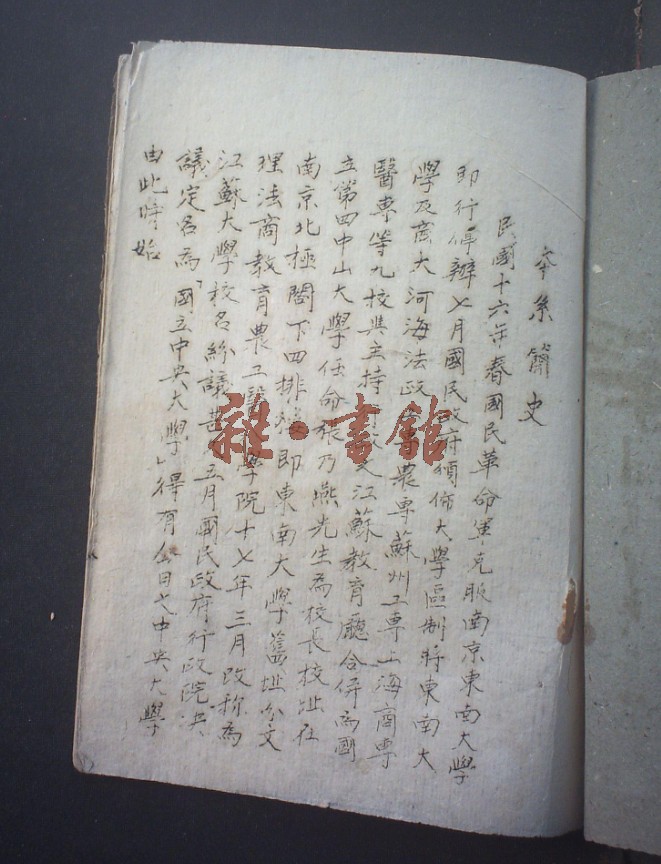 本系簡史
民國十六年春國民革命軍克服南京東南大學
即行停辦七月國民政府頒佈大學區制將東南大
學及商大河海法政農專蘇州工專上海商專
醫專等九校與主持江蘇教育廳合併為國
立第四中山大學任命張乃燕先生為校長校址在
南京北極閣下四排樓即東南大學舊址分文
理法商教育農工醫學院十七年三月改称為
江蘇大學校名絲議甚五月國民政府行政院決
議定名為「國立中央大學」得有今日之中央大學
由此時始
雜·書館